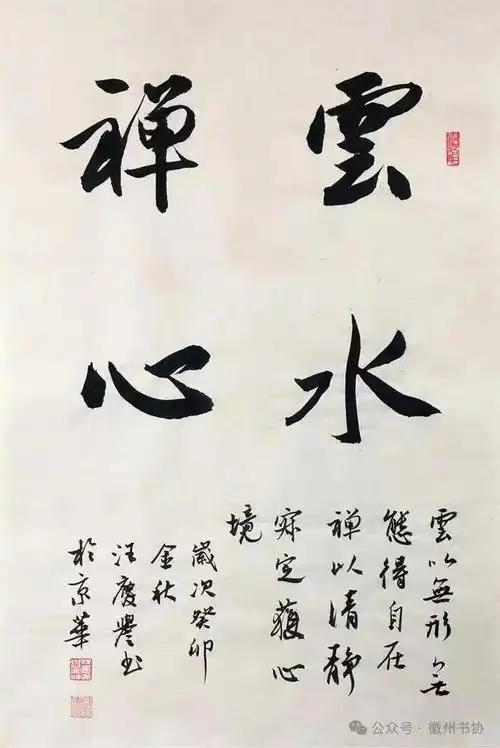 雲水
禪心
雲以無形無
態得自在
禅以清静
寂定蕴心
境
歲次癸卯
金秋
汪慶譽书
於京華
公众号·徽州书协